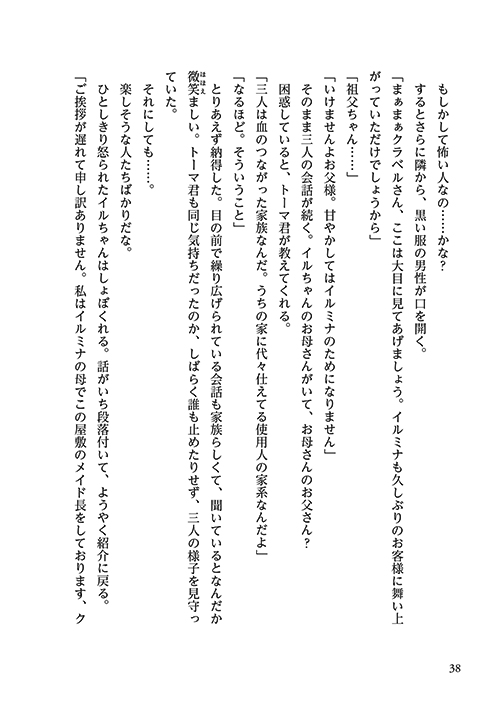 もしかして怖い人なの……かな?
するとさらに隣から、黒い服の男性が口を開く。
「まぁまぁクラベルさん、ここは大目に見てあげましょう。イルミナも久しぶりのお客様に舞い上
がっていただけでしょうから」
「祖父ちゃん……」
「いけませんよお父様。甘やかしてはイルミナのためになりません」
そのまま三人の会話が続く。イルちゃんのお母さんがいて、お母さんのお父さん?
困惑していると、トーマ君が教えてくれる。
「三人は血のつながった家族なんだ。うちの家に代々仕えてる使用人の家系なんだよ」
「なるほど。そういうこと」
とりあえず納得した。目の前で繰り広げられている会話も家族らしくて、聞いているとなんだか
微笑ましい。トーマ君も同じ気持ちだったのか、しばらく誰も止めたりせず、三人の様子を見守っ
ほほえ
ていた。
それにしても……。
楽しそうな人たちばかりだな。
ひとしきり怒られたイルちゃんはしょぼくれる。話がいち段落付いて、ようやく紹介に戻る。
「ご挨拶が遅れて申し訳ありません。私はイルミナの母でこの屋敷のメイド長をしております、ク
38